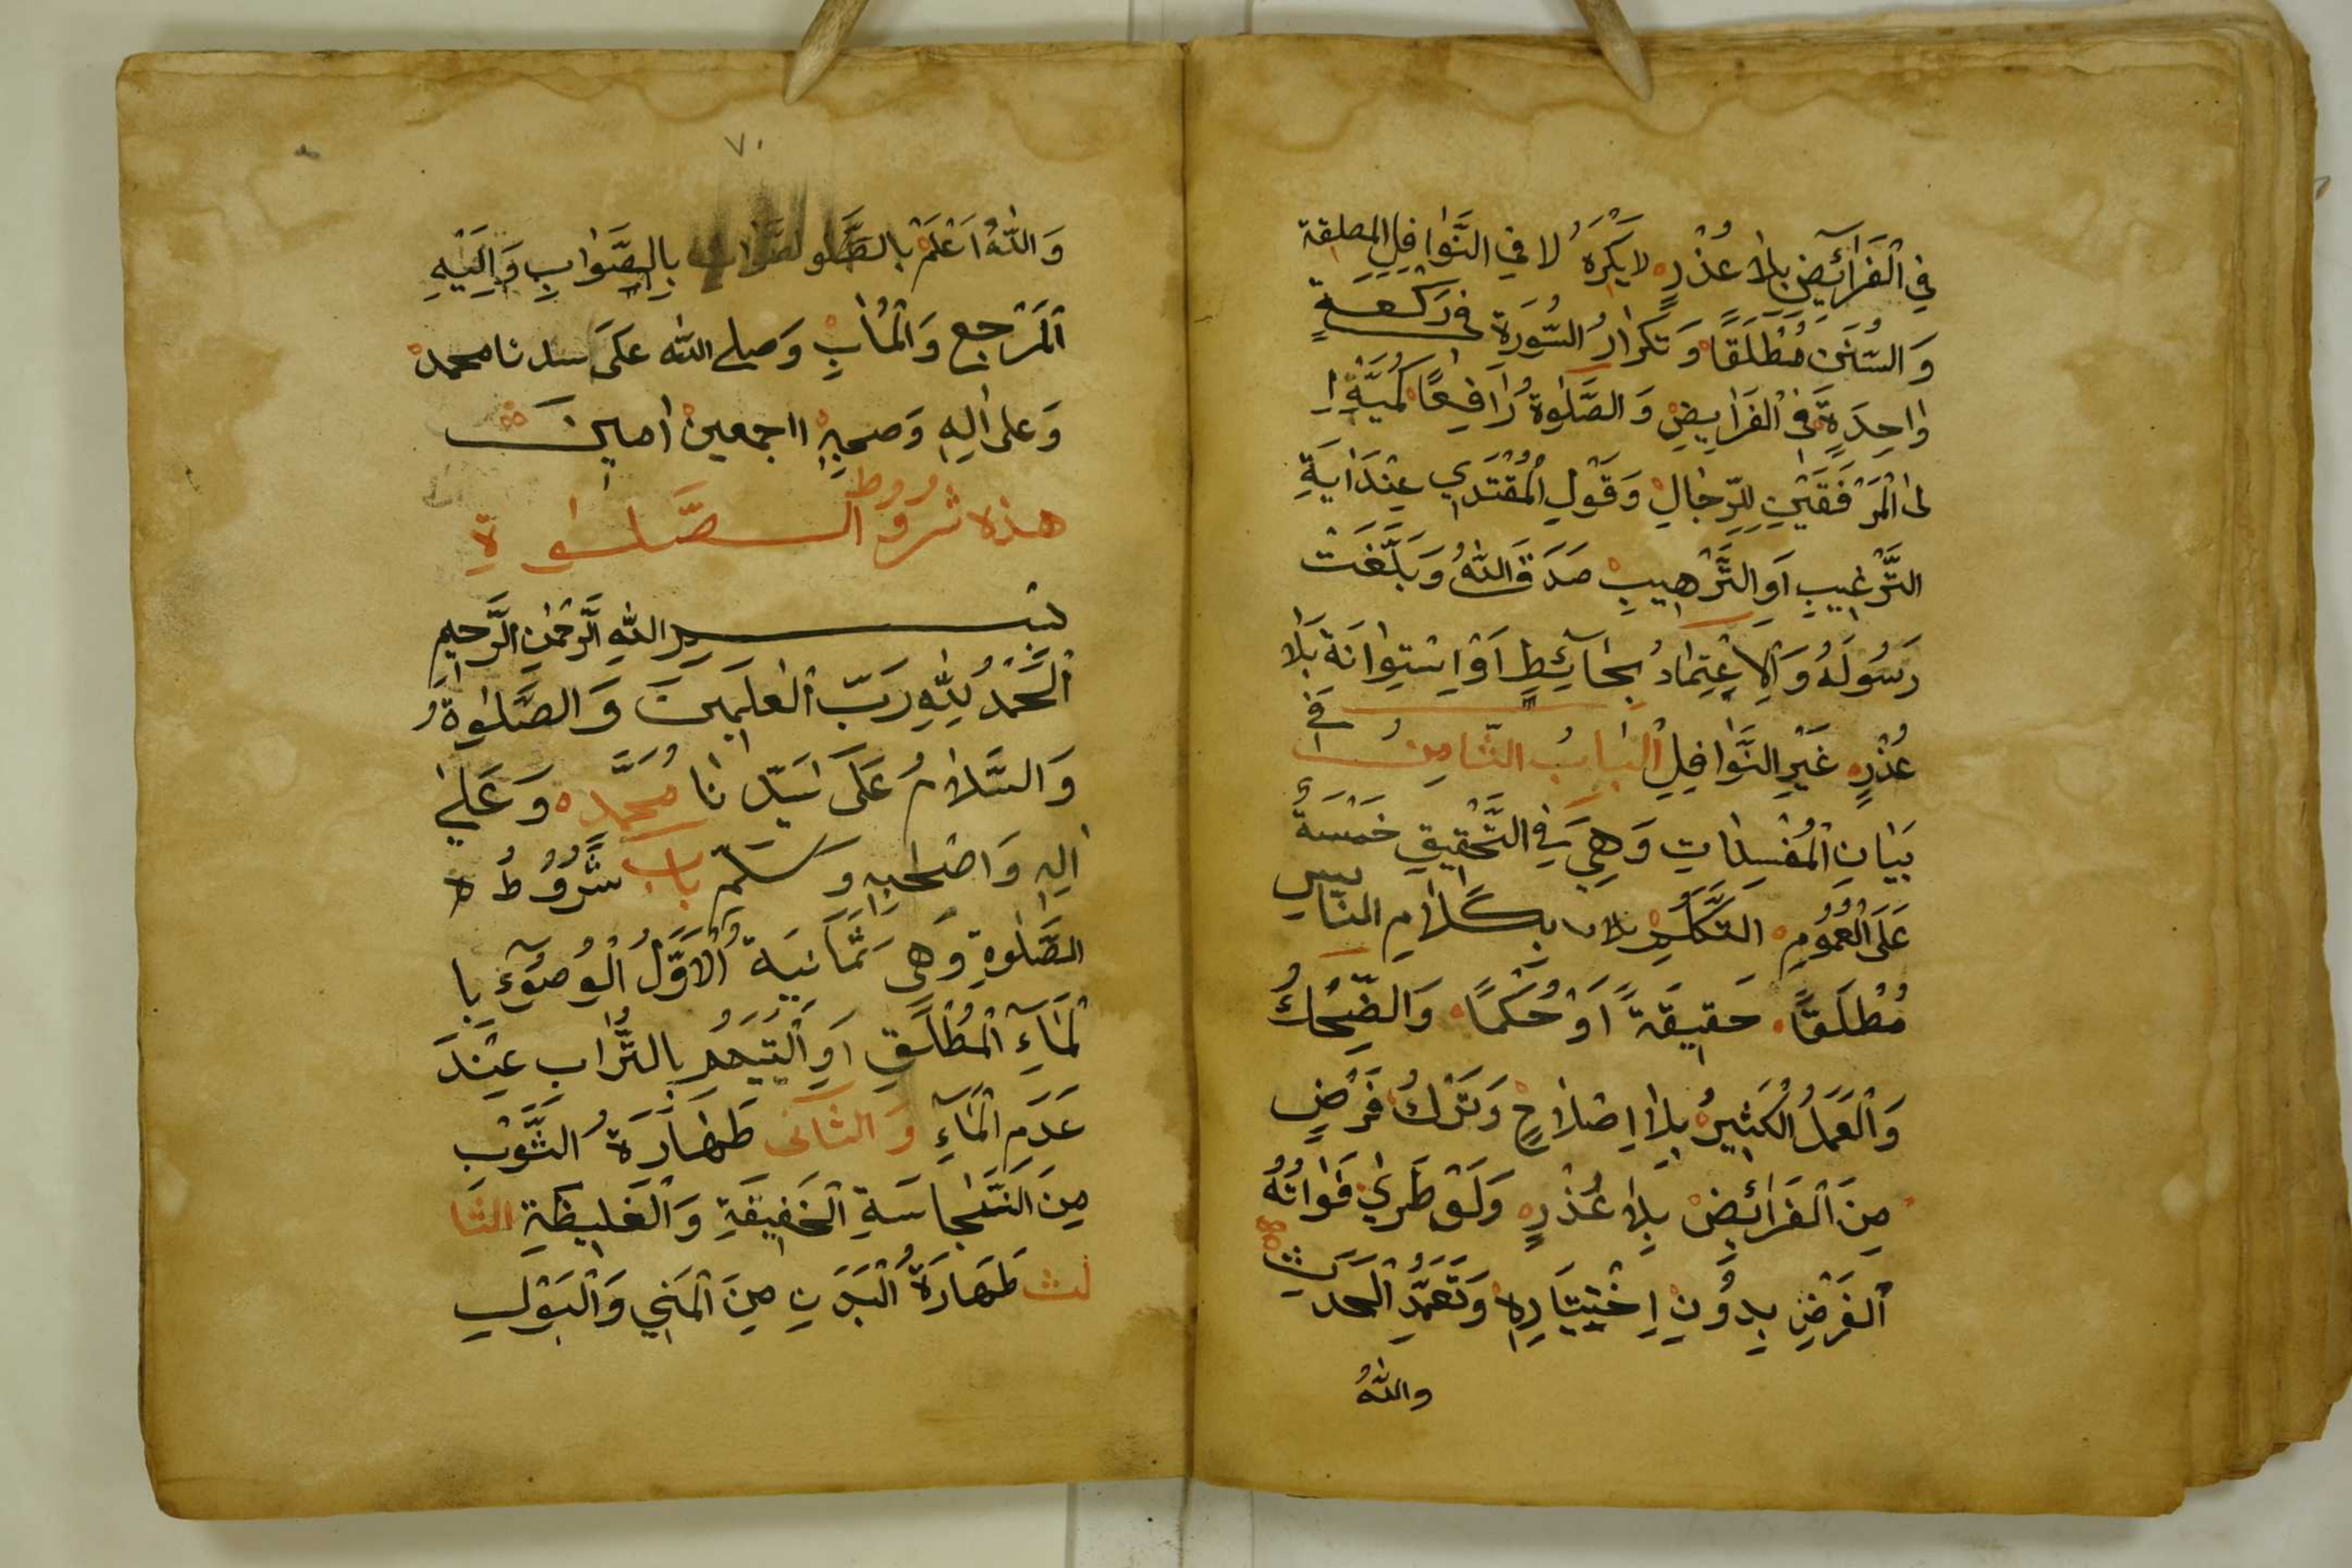 في الْفَرَآئِضِ بِلَا عُذْرٍ لا يَكْرَهُ لا في النَّوافِلِ المطلقة
وَالسُّنَنِ مُطْلَقًا وَتَكْرارُ السُّورَةِ في رَكْعَةٍ
واحِدَةٍ في الْفَرَايِضِ وَالصَّلٰوةُ رَافِعًا كُمَيَّهِ اِ
لى الْمَرْفَقَيْنِ لِلرِّجَالِ وَقَوْلِ الْمُقْتَدِي عِنْدَ اٰيَةِ
التَّرْغِيبِ اَوِ التَّرْهِيبِ صَدَقَ اللّٰهُ وَبَلَّغَتْ
رَسُولَهُ وَالْاِعْتِمَادُ بِحَآئِطٍ اَوْ اِسْتِوَانَة بَلَا
عُذْرٍ غَيْرِ النَّوافِلِ الْبَابُ الثَّامِنُ في
بَيَانِ الْمُفْسِدَاتِ وَهِيَ في التَّحْقِيقِ خَمْسَةٌ
عَلَى الْعُمُومِ التَّكَلُّمُ بِكَلَامِ النَّاسِ
مُطْلَقًا حَقِيقَةً اَوْ حُكْمًا وَالضِّحْكُ
وَالْعَمَلُ الْكَثِيرُ بِلَا اِصْلَاحٍ وَتَرْكُ فَرْضٍ
مِنَ الْفَرَائِضْ بِلَا عُذْرٍ وَلَوْ طَرِيَ فَوَاتُهُ
الْفَرْضِ بِدُونِ اِخْتِيَارِهِ وَتَعَمُّدِ الْحَدَثِ
واللّٰهُ
٧٠
وَاللّٰهُ اَعْلَمُ بِالصَّوَابِ وَاِلَيْهِ
الْمَرْجِعِ وَالْمَاٰبِ وَصلى اللّٰه عَلَى سيدنا محمد
وَعلى اٰلِهِ وَصحبِهِ اجمعين امين
هذه شروط الصَّلٰوةِ
بِسْمِ اللّٰهِ الرَّحْمٰنِ الرَّحِيمِ
اَلْحَمْدُ لِلّٰهِ رَبِّ الْعٰلَمِينَ وَالصَّلٰوةُ
وَالسَّلَامُ عَلَى سَيِّدِنَا مُحَمَّدٍ وَعَلٰى
اٰلِهِ وَاَصْحٰبِهِ وَسَلَّمَ بَاب شُرُوطُ
الصَّلٰوةِ وَهِى ثَمَانِيَة اَلْاَوَّلُ الْوُضُوءُ بِا
لْمَآءِ الْمُطْلَقِ اَوِ التَّيَمُّمِ بِالتُّرَابِ عِنْدَ
عَدَمِ الْمَآءِ وَالثَّانى طَهَارَةُ الثَّوْبِ
مِنَ النَّجَاسَةِ الْخَفِيفَةِ وَالْغَلِيظَةِ الثَّا
لث طَهَارَةُ الْبَدَنِ مِنَ الْمَنِيِ وَالْبَوْلِ